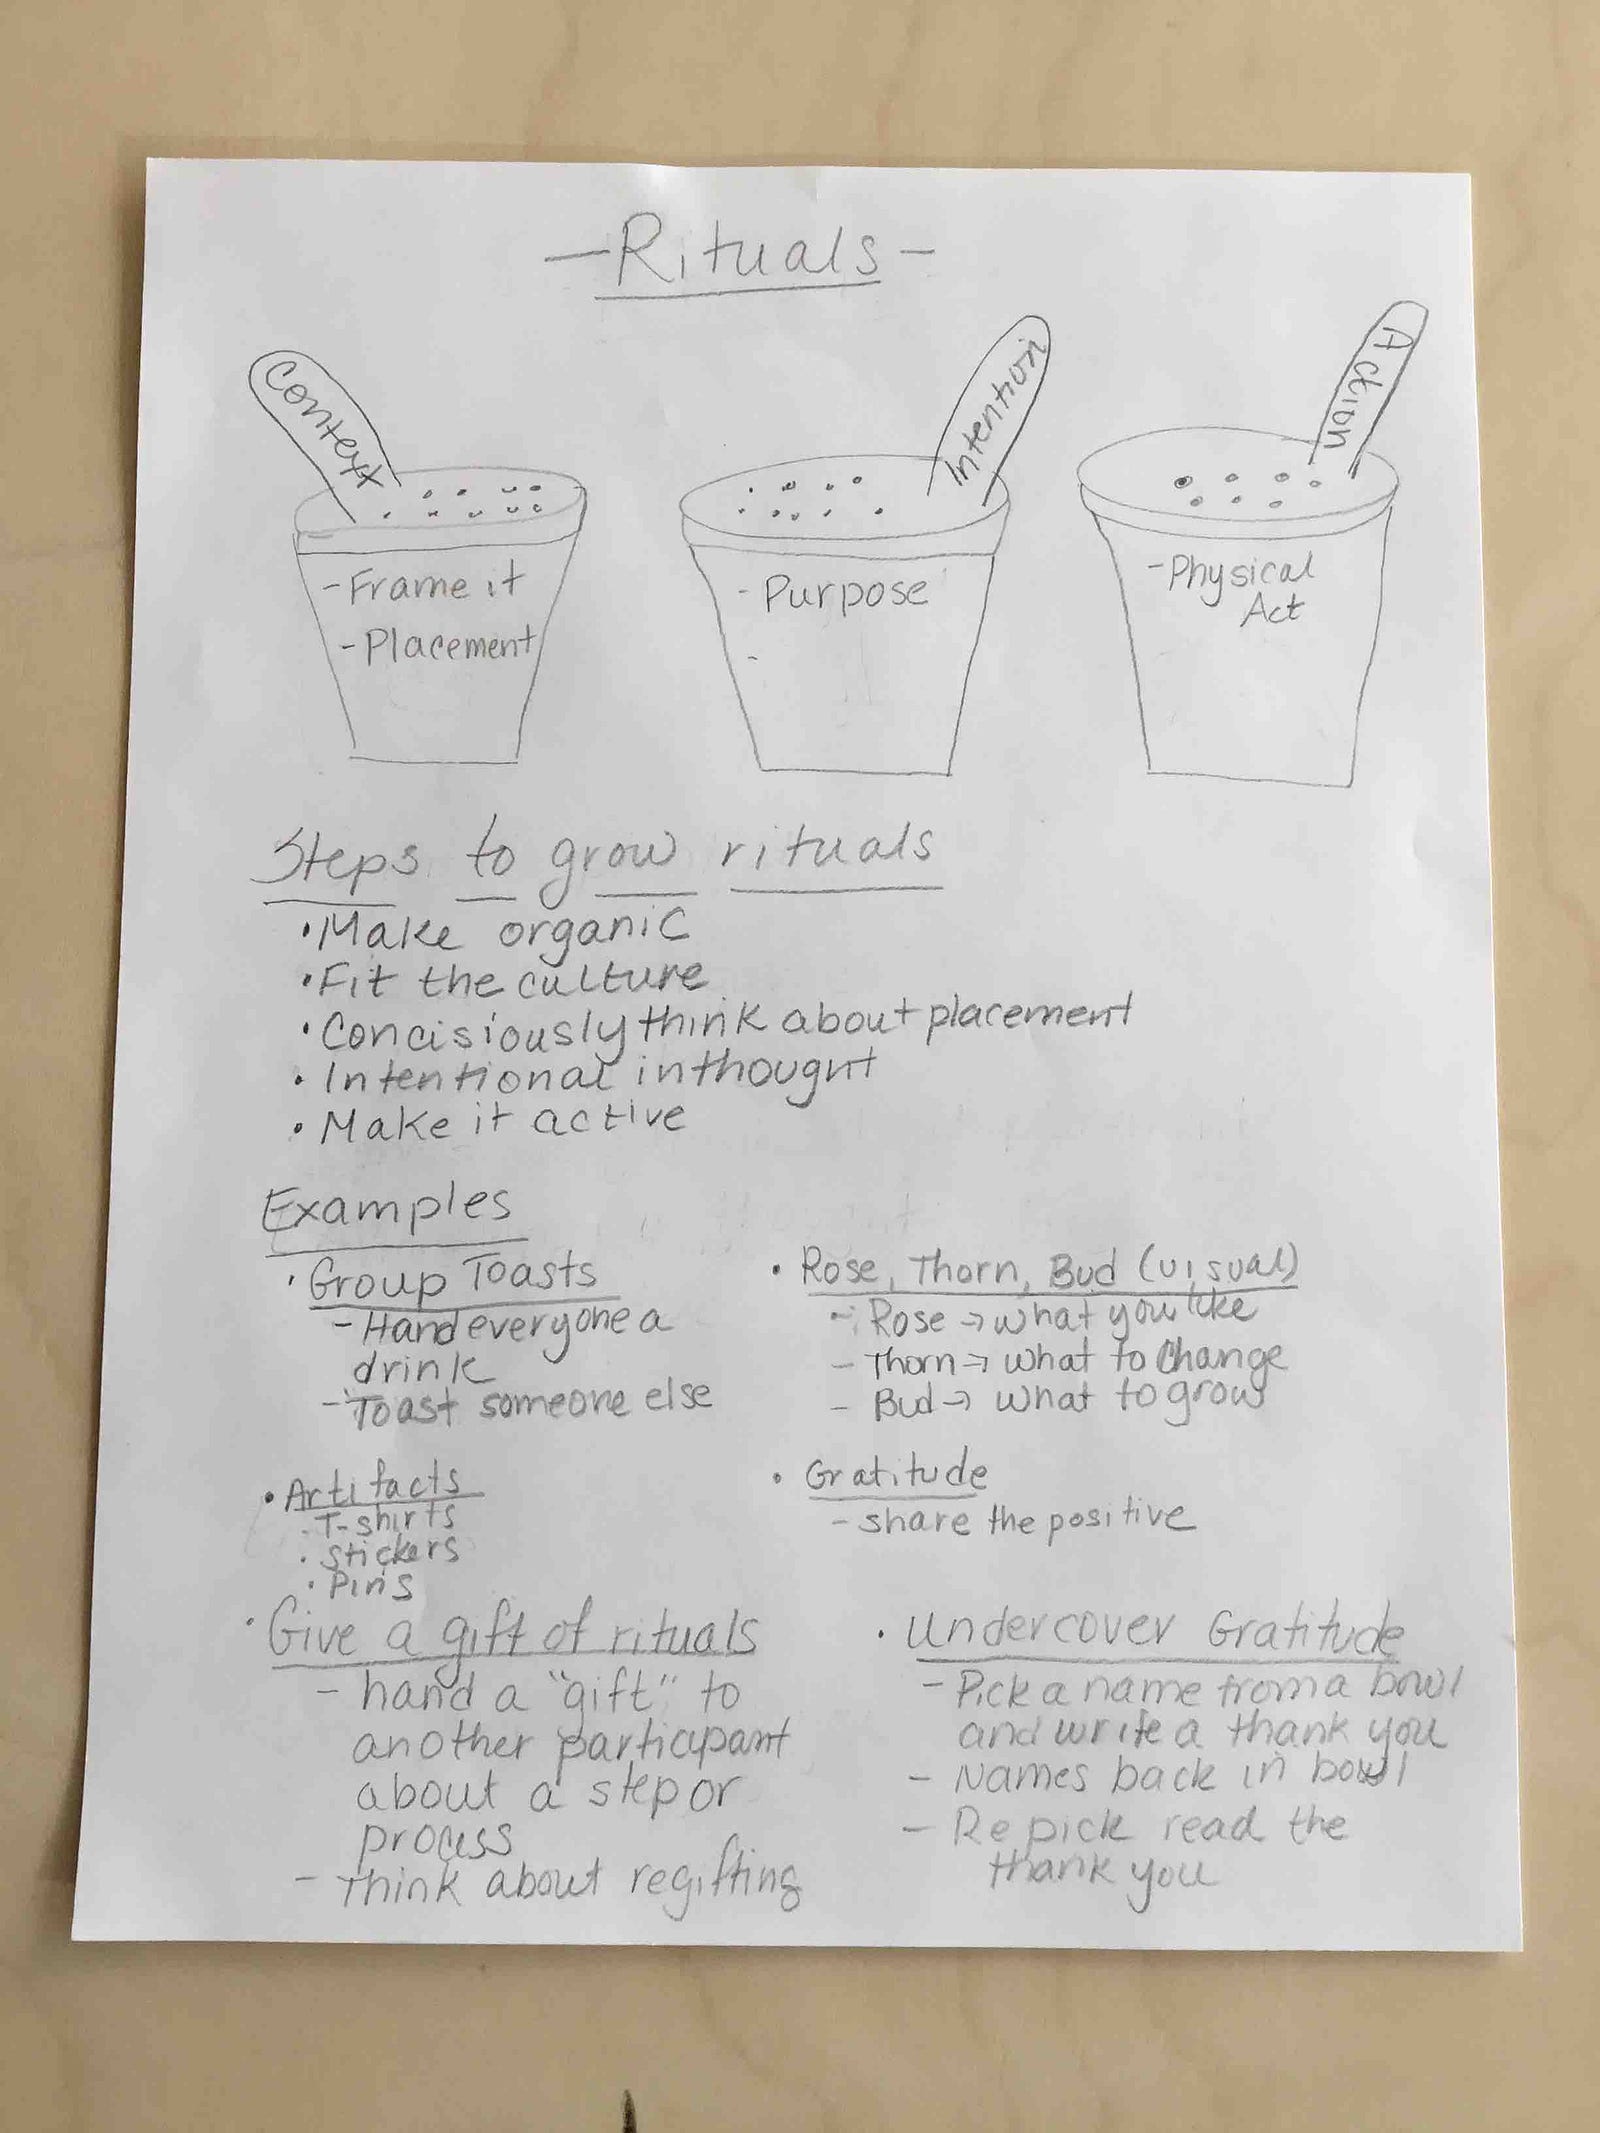 —Rituals—
Context
Intention
Action
-Frame it
-Placement
- Purpose
-
-Physical
Act
Steps to grow rituals
•Make organic
•Fit the culture
•Concisiously think about placement
• Intentional in thought
• Make it active
Examples
• Group Toasts
- Hand everyone a
drink
- Toast someone else
• Artifacts
· T-shirts
· Stickers
· Pins
• Rose, Thorn, Bud (visual)
- Rose → what you like
- Thorn → what to change
- Bud → what to grow
• Gratitude
- share the positive
• Give a gift of rituals
- hand a "gift" to
another participant
about a step or
process
- Think about regifting
• Undercover Gratitude
- Pick a name from a bowl
and write a thank you
- Names back in bowl
- Re pick read the
thank you